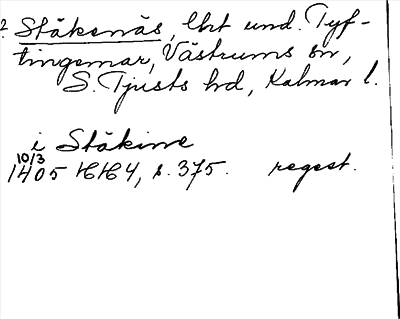 ? Ståkenäs, lht und. Tyf-
tingemar, Västrums sn,
S. Tjusts hd, Kalmar l.
i Ståkinne
10/3
1405 HH4, s. 375. regest.